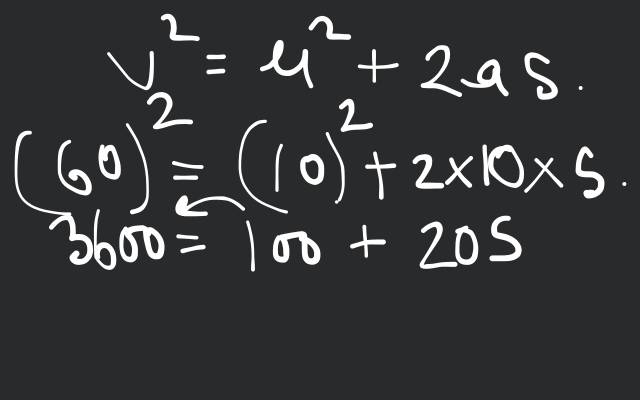 v² = u² + 2as.
(60)² = (10)² + 2×10×s.
3600 = 100 + 20s